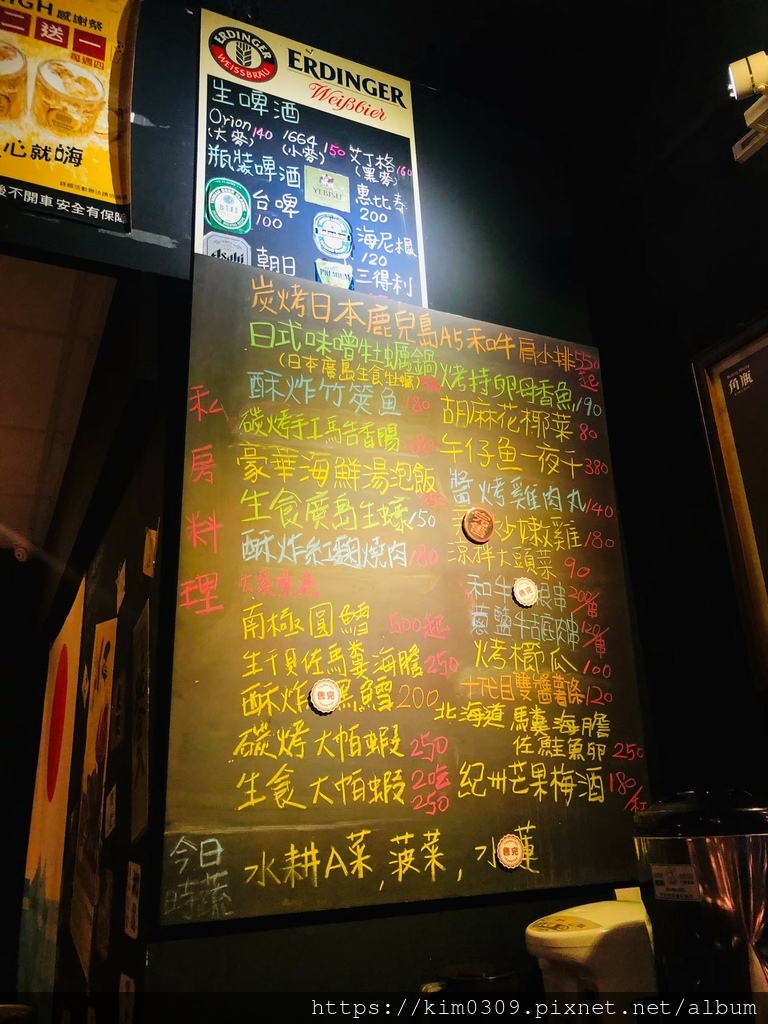 HIGH 感謝祭
二送一
每週四
心就嗨
後不開車 安全有保障
ERDINGER
WEISSBRÄU
ERDINGER
Weißbier
生啤酒
Orion 140 1664 150 艾丁格 160
(大麥) (小麥) (黑麥)
瓶裝啤酒 YEBISU 惠比壽
200
台啤
100
海尼根
120
Asahi 朝日 PREMIUM 三得利
炭烤日本鹿兒島A5和牛肩小排 550起
私房料理
日式味噌牡蠣鍋
(日本廣島生食牡蠣)
酥炸竹筴魚 180
碳烤手工馬告香腸
豪華海鮮湯泡飯
生食廣島生蠔 150
酥炸紅麴燒肉 180
南極圓鱈 500起
生干貝佐馬糞海膽 250
酥炸 黑鱈 200
碳烤大帕蝦 250
生食大帕蝦 2吃
250
烤持卵母香魚 190
胡麻花椰菜 80
午仔魚一夜干 380
醬烤雞肉丸 140
沙嫩雞 180
涼拌大頭菜 90
和牛 串 200/串
蔥鹽牛 肉串 120/串
烤櫛瓜 100
十代目雙醬薯條 120
北海道馬糞海膽
佐鮭魚卵 250
紀州芒果梅酒 180/杠
售完
售完
售完
今日時蔬
水耕A菜, 菠菜, 水蓮
角瓶
https://kim0309.pixnet.net/album